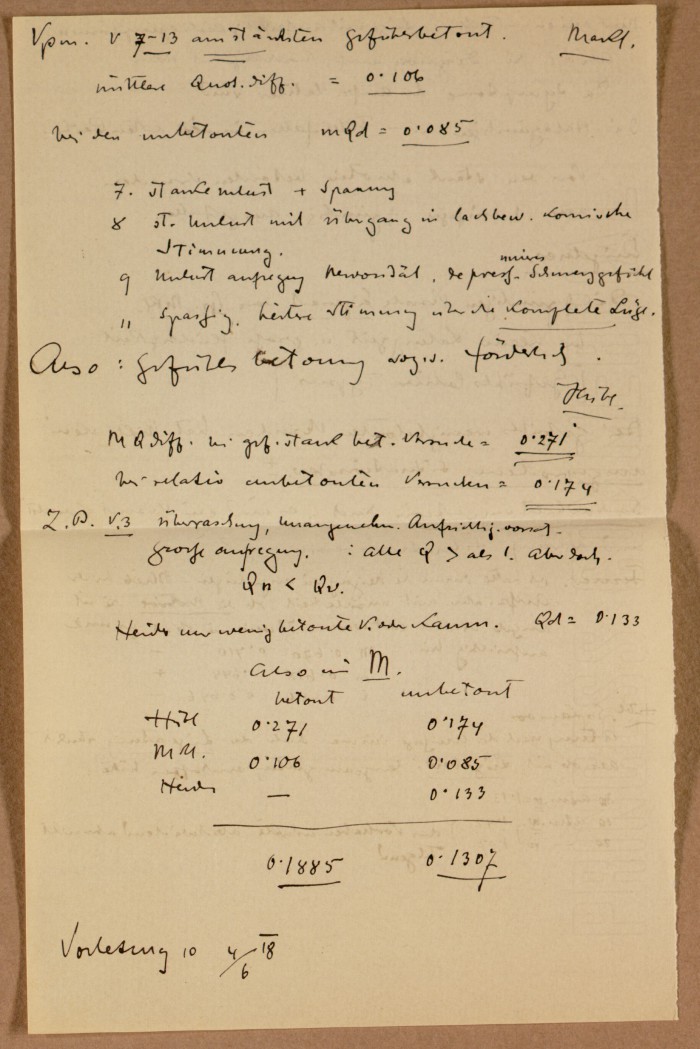 Vpn. V 7-13 am stärksten gefühlsbetont.
mittlere Quot. diff. = 0.106
bei den unbetonten mQd = 0.085
7. starke Unlust + Spannung
8 st. Unlust mit Übergang in komische
Stimmung.
9 Unlust aufregung Nervosität, depress.
11 Spassig. heitere Stimmung über die komplette Lüge.
Also: gefühlsbetonung förderlich.
M Qdiff. bei gef. stark bet. Versuche = 0.271
bei relativ unbetonten Versuchen = 0.174
Z.B. V.3 Überraschung, unangenehm.
grosse aufregung. : alle Q > als 1. Aber doch.
Qn < Qv.
nur wenig betonte V. oder kaum. Qd = 0.133
Also in M.
betont unbetont
0.271 0.174
0.106 0.085
— 0.133
0.1885 0.1307
Vorlesung 10 4/6 18